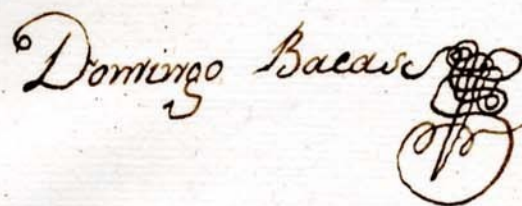 Domingo Bacas